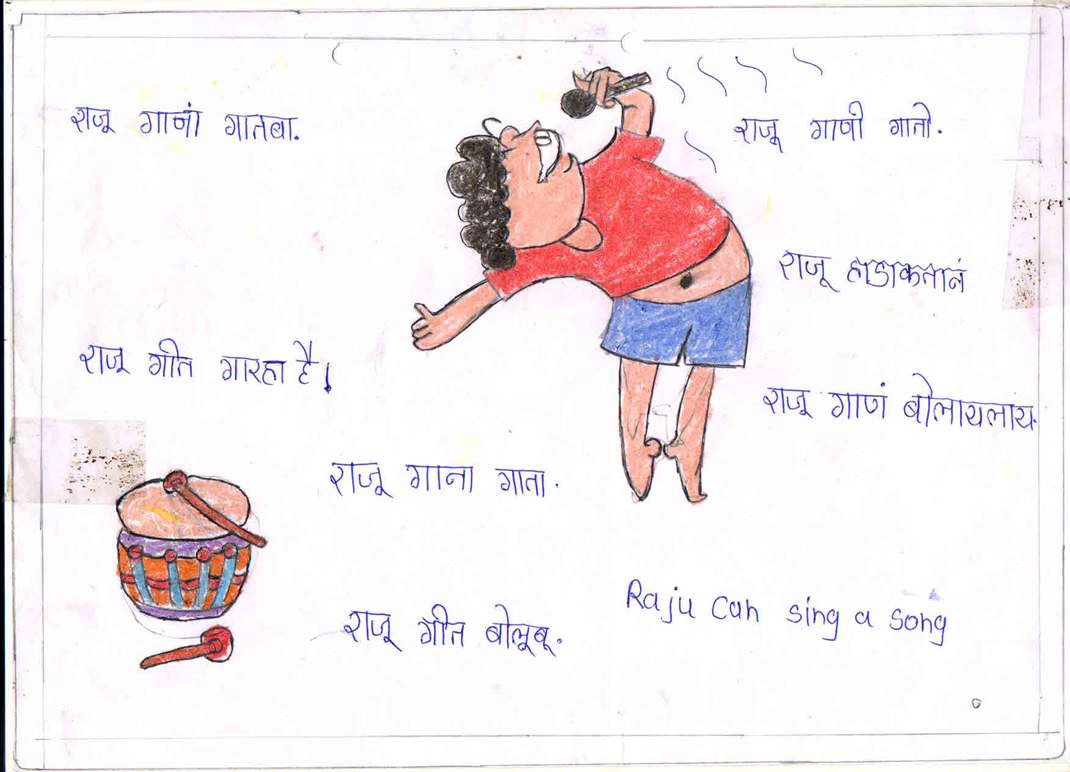 राजू गानां गातबा.
राजू गाणी गातो.
राजू हाडाकतानं
राजू गीत गारहा है।
राजू गाणं बोलायलाय.
राजू गाना गाता.
Raju can sing a song
राजू गीत बोलूबू.